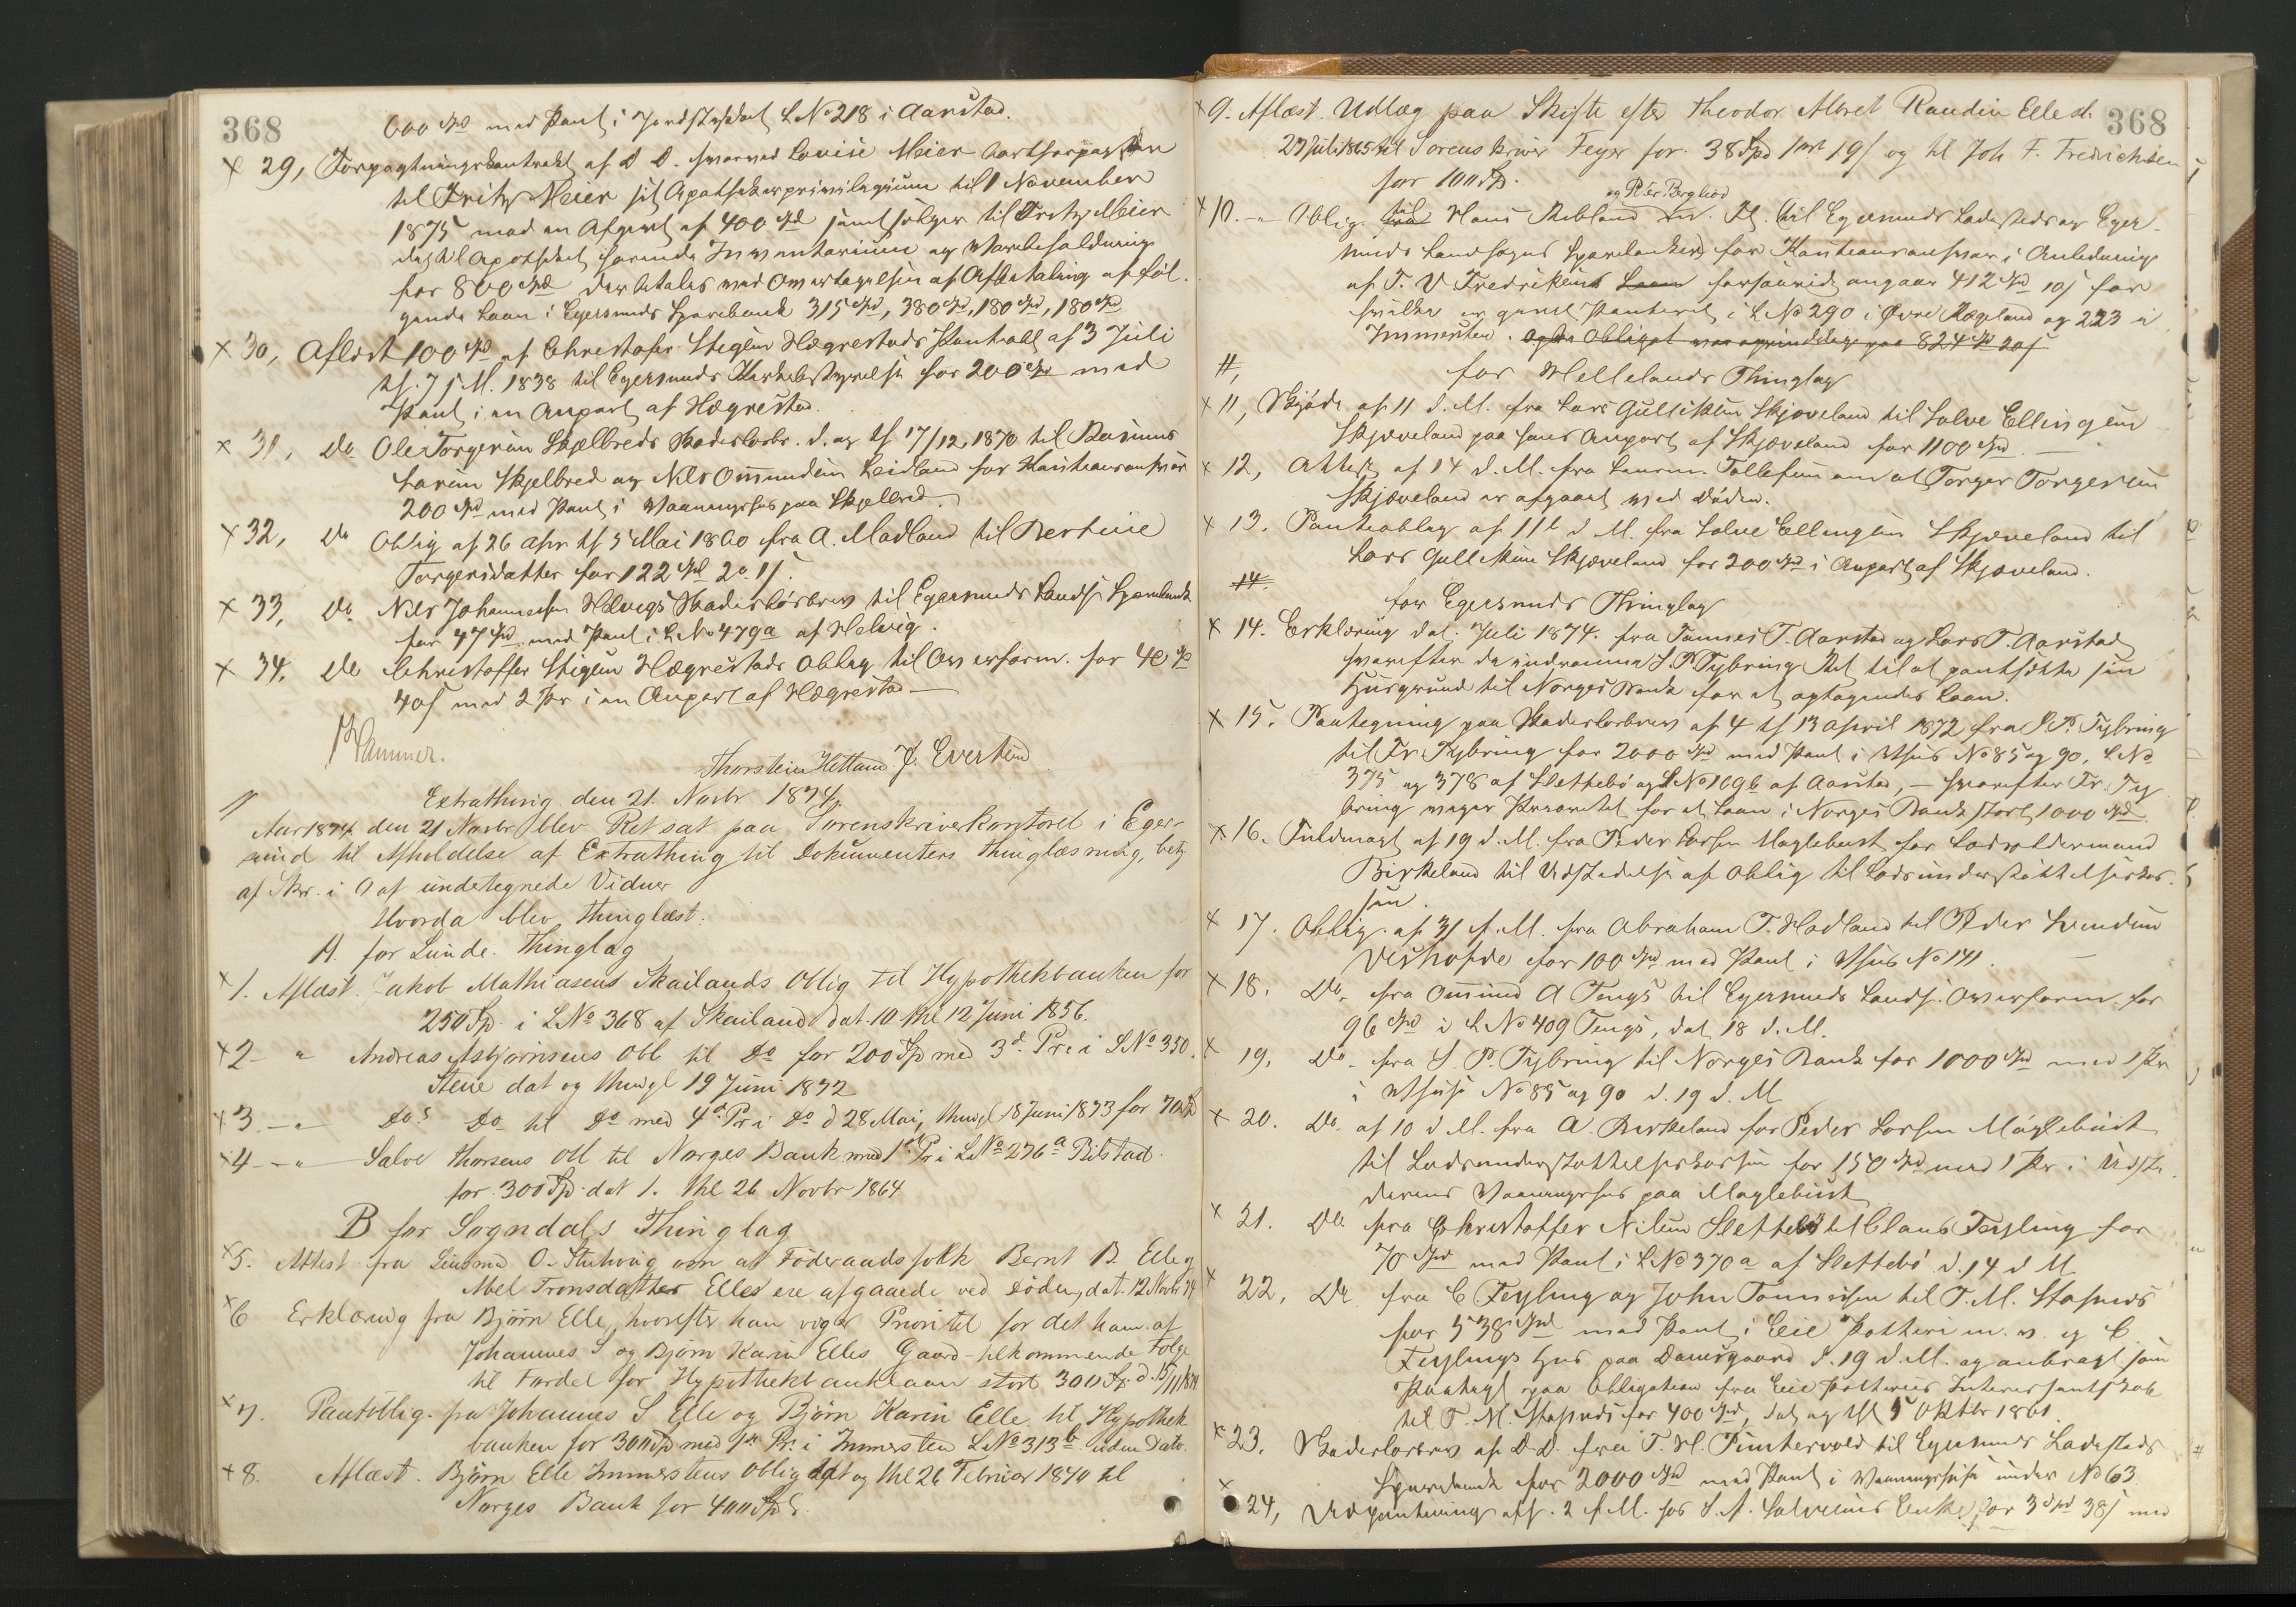 368
600 Spd med Pant i Jordstykket L No 218 i Aarstad.
29, Forpagtningskontrakt af D. D. hvorved Louise Meier bortforpagter
til Fritz Meier sit Apothekerprivilegium til 1 November
1875 mod en Afgivt af 400 Spd samt sælger til Fritz Meier
det til Apotheket hørende Inventarium og Varebeholdning
for 800 Spd der betales ved Overtagelsen af Afbetaling af føl-
gende Laan i Egersunds Sparebank 315 Spd, 380 Spd, 180 Spd, 180 Spd
30, Aflæst 100 Spd af Christofer Stigsen Hægrestads Pantobl af 3 Juli
tl. 7 s. M. 1838 til Egersunds for 200 Spd med
Pant i en Anpart af Hægrestad.
31, Do Ole Torgersen Skjelbreds Skadesløsbr. d. og tl 17/12 1870 til Rasmus
Larsen Skjelbred og Nils Ommundsen Leidland for Kautionsansvar
200 Spd med Pant i Vaaningshus paa Skjelbred.
32, Do Oblig af 26 Apr tl 5 Mai 1860 fra A. Madland til Bertine
Torgersdatter for 122 Spd 2 o. 1 s.
33, Do Nils Johannesen Helvigs Skadesløsbrev til Egersunds Lands Sparebank
for 47 Spd med Pant i L No 479a af Helvig.
34, Do Christoffer Stigsen Hægrestads Oblig til Overform. for 40 Spd
40 s med 2 Pr i en Anpart af Hægrestad
Hammer.
Thorstein Hetland J. Evertsen
Extrathing den 21. Novbr 1874.
Aar 1874 den 21 Novbr blev Ret sat paa Sorenskriverkontoret i Eger-
sund til Afholdelse af Extrathing til Dokumenters Thinglæsning, betj
af Skr. i O af undertegnede Vidner
Hvorda blev thinglæst.
A. for Lunde. Thinglag
1. Aflæst. Jakob Mathiasens Skailands Oblig til Hypothekbanken for
250 Sp. i L No 368 af Skailand dat. 10 thl 12 Juni 1856.
2 - " Andreas Asbjørnsens Obl til Do for 200 Sp med 3d Pr. i L No 350.
Stene dat og thingl 19 Juni 1872
3. - " - Do s Do til Do med 4d Pr i Do d 28 Mai, thingl 18 Juni 1873 for 70 Sp
4 - " - Salve Thorsens Obl til Norges Bank med 1st Pr i L No 276a Bilstad.
for 300 Sp. dat 1. thl 26 Novbr 1864
B for Sogndals Thinglag
5. Attest fra Lensmd O. Stuhoug om at Føderaadsfolk Bernt B. Elle og
Abel Tronsdatter Elles ere afgaaede ved Døden, dat. 12 Novbr 74
6 Erklæring fra Bjørn Elle, hvorefter han viger Prioritet for det ham af
Johannes S og Bjørn Karin Elles Gaard tilkommende Folge
til Fordel for Hypothekbanklaan stort 300 Sp. d. 15/11 1874
7. Pantoblig. fra Johannes S Elle og Bjørn Karin Elle til Hypothek
banken for 300 Sp med 1st Pr. i Immersten L No 313b uden Dato.
8. Aflæst. Bjørn Elle Immerstens Oblig dat og thl 26 Februar 1870 til
Norges Bank for 400 Sp.
368
9. Aflæst. Udlæg paa Skifte efter Theodor Albret Randin Elle d.
27 Juli 1865 til Sorenskriver Feyer for 38 Spd 1 ort 19 s og til Joh F. Fredrichsen
for 100 Sp.
og P. Chr. Bergliod
10. - " Oblig. fra til Hans Birkland til Egersunds Ladesteds og Eger-
sunds Landsogns Sparebanker for Kautionsansvar i Anledning
af T. V Fredriksens Laan forsaavidt angaar 412 Spd 10 s for
hvilke er givet Panteret i L No 290 i Øvre Rægeland og 223 i
Immersten. Obligat var oprindelige paa 824 Spd 20 s
11, for Hellelands Thinglag
11, Skjøde af 11 d. M. fra Lars Gulliksen Skjæveland til Salve Ellingsen
Skjæveland paa hans Anpart af Skjæveland for 1100 Spd
12, Attest af 14 d. M. fra Lensm. Tollefsen om at Torger Torgersen
Skjæveland er afgaaet ved Døden.
13. Panteoblig af 11te d M. fra Salve Ellingsen Skjæveland til
Lars Gulliksen Skjæveland for 200 Spd i Anpart af Skjæveland.
14. for Egersunds Thinglag
14. Erklæring dat. Juli 1874. fra Tønnes T. Aarstad og Lars T. Aarstad
hvorefter de indrømme S. P. Tybring Ret til at pantsætte sin
Husgrund til Norges Bank for et optagendes Laan.
15. Paategning paa Skadesløsbrev af 4 tl 13 April 1872 fra S. P. Tybring
til Fr Tybring for 2000 Spd med Pant i Hus No 85 og 90, L No
375 og 378 af Slettebø og L No 169b af Aarstad, – hvorefter Fr. Ty
bring viger Prioritet for et Laan i Norges Bank stort 1000 Spd
16. Fuldmagt af 19 d. M. fra Peder Larsen Maglebust for Lodsoldermand
Birkeland til Udstedelse af Oblig til Lodsunderstøttelseskas-
sen.
17. Oblig. af 31 f. M. fra Abraham T. Hadland til Peder Svendsen
for 100 Spd med Pant i Hus No 141.
18. Do. fra Ommund A Tengs til Egersunds Lands. Overform. for
96 Spd i L No 409 Tengs, dat 18 d. M.
19, Do. fra S. P. Tybring til Norges Bank for 1000 Spd med 1 Pr
i Huse No 85 og 90 d. 19 d. M
20. Do. af 10 d M. fra A. Birkeland for Peder Larsen Maglebust
til Lodsunderstøttelseskassen for 150 Spd med 1 Pr. i Udste-
derens Vaaningshus paa Maglebust
21. Do fra Christoffer Nilsen Slettebø til Claus Feyling for
70 Spd med Pant i L No 370a af Slettebø d. 14 d M
22, Do fra C. Feyling og John Tønnesen til T. M. Stapnes
for 538 Spd med Pant i Eie Potteri m. v. og C.
Feylings Hus paa Damsgaard d. 19 d. M. og anbragt som
Paategn paa Obligation fra Eie Potteries Interessentskab
til T. M. Stapnes for 400 Spd, dat og thl 5 Oktbr 1861.
23. Skadesløsbrev af D. D. fra T. H. Puntervold til Egersunds Ladesteds
Sparebank for 2000 Spd med Pant i Vaaningshuse under No 63.
24, Udpantning aff. 2 f. M. hos S. A. Salvesens Enke, for 3 Spd 38 s med